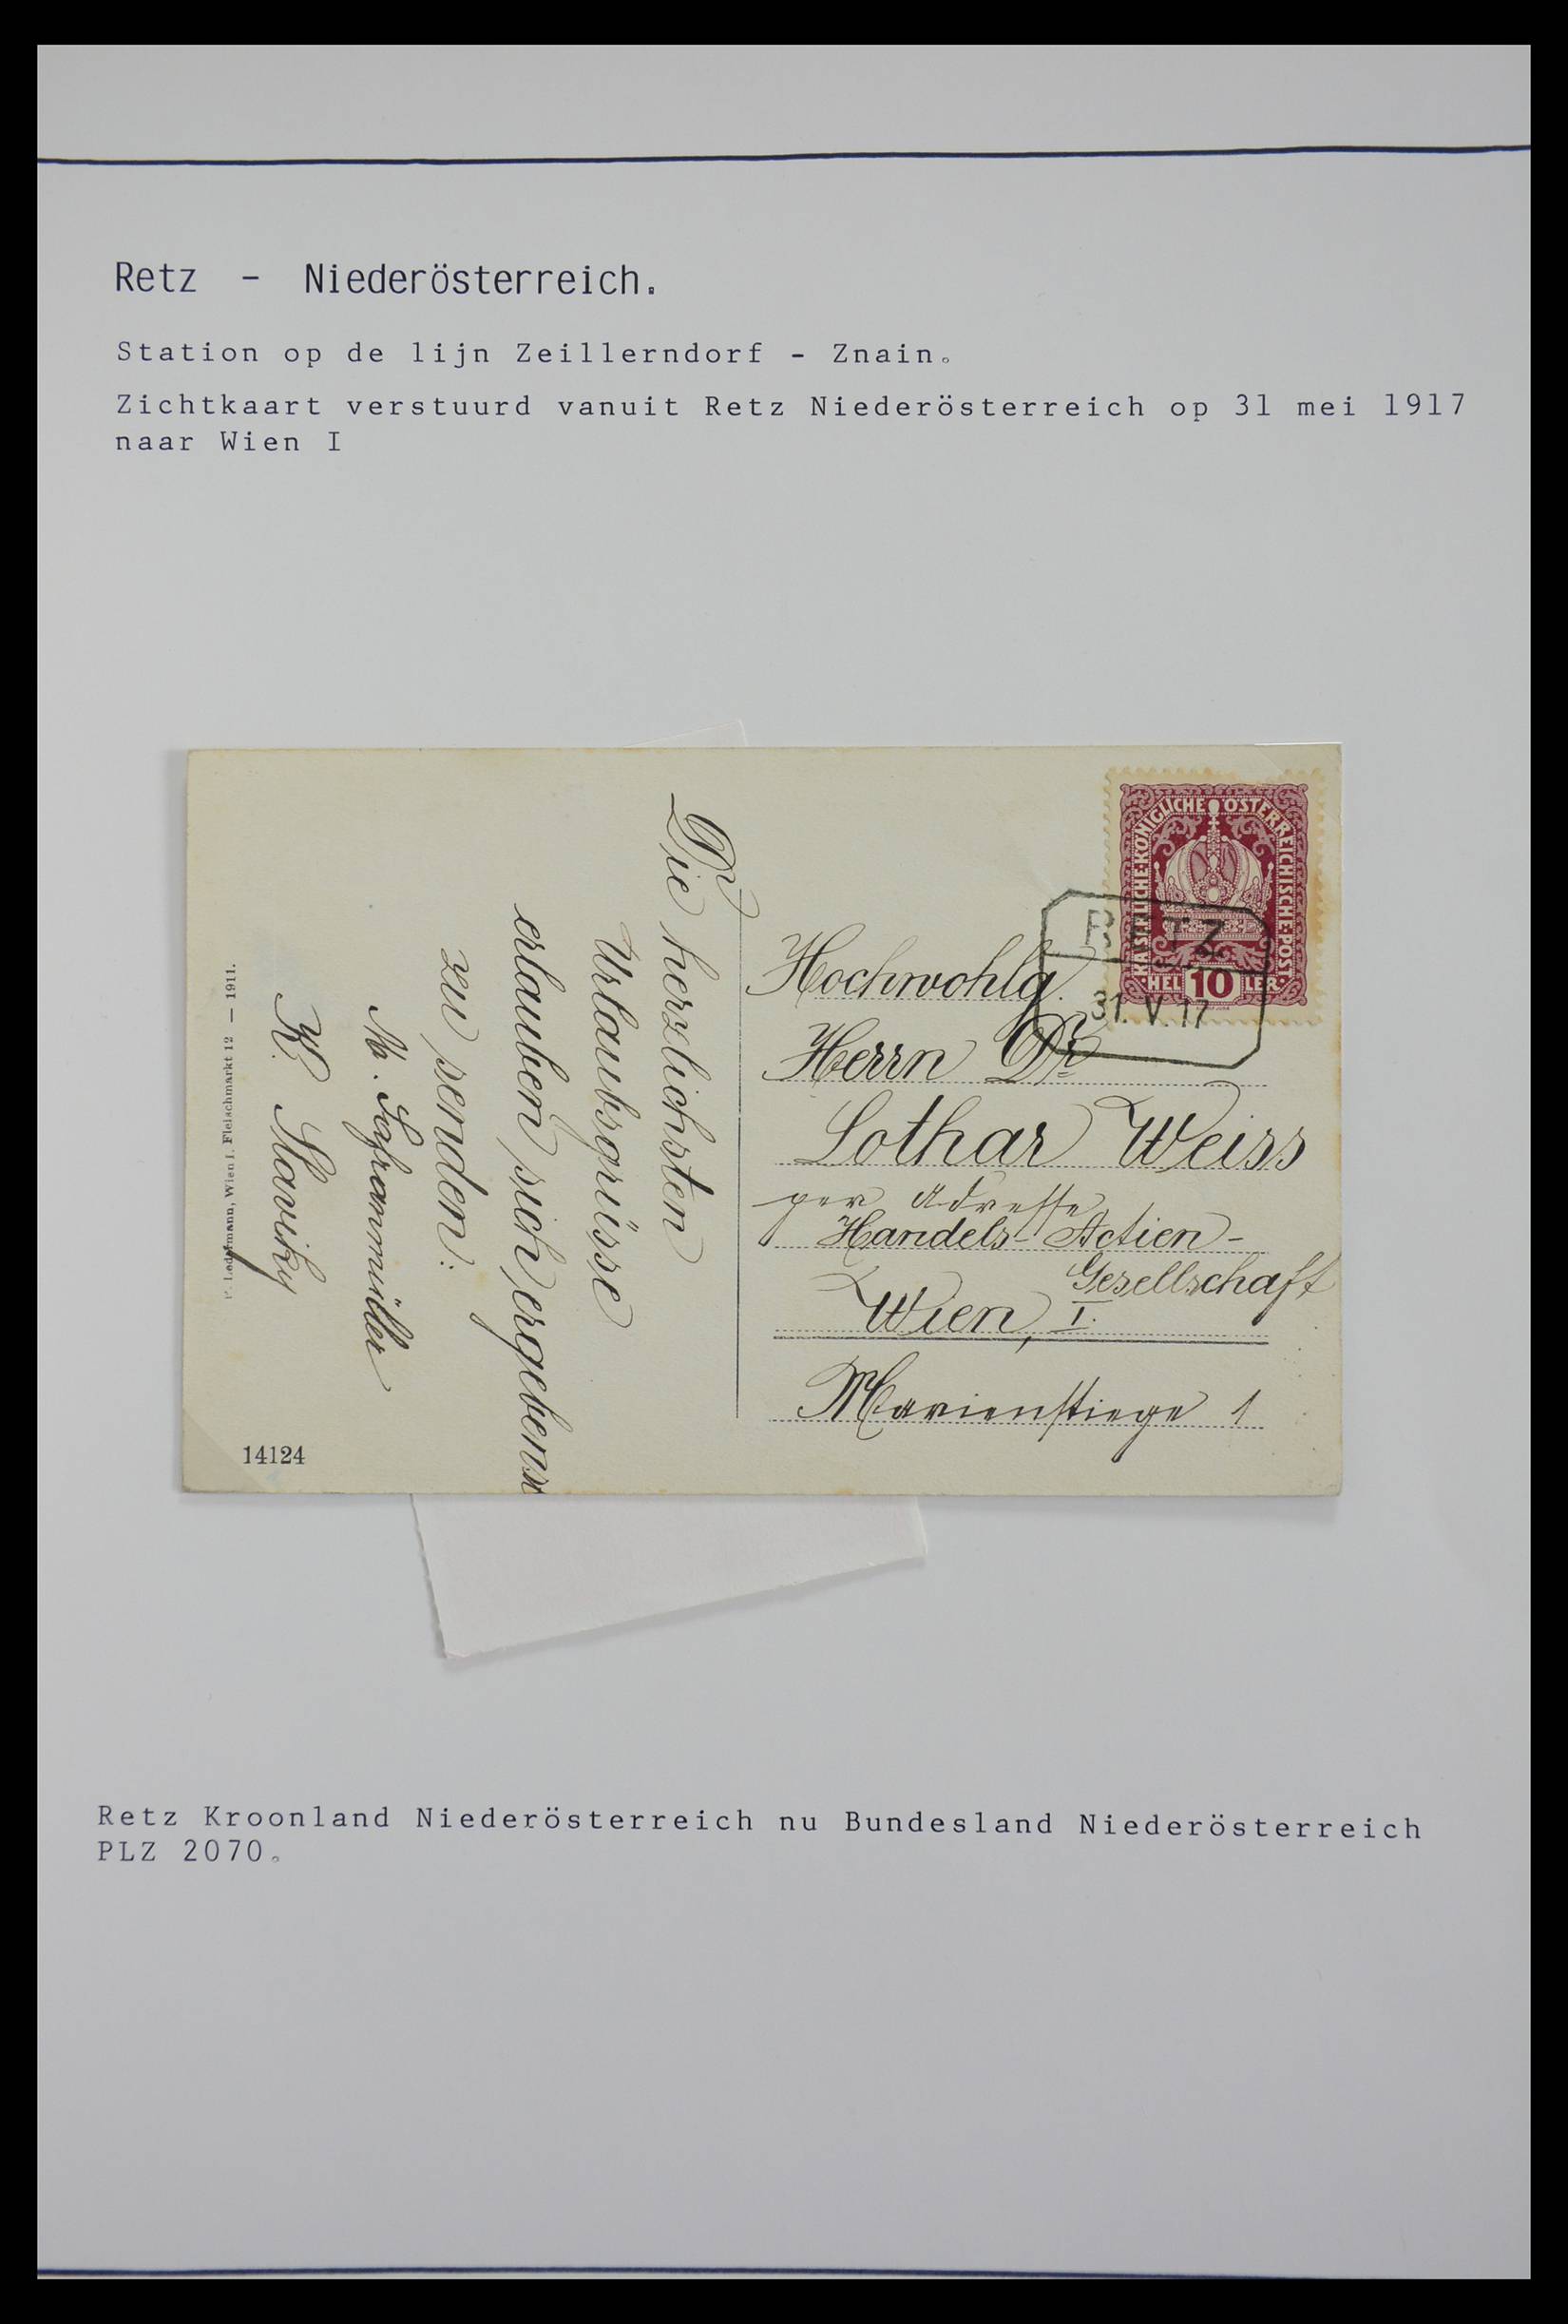 Retz - Niederösterreich.
Station op de lijn Zeillerndorf - Znain.
Zichtkaart verstuurd vanuit Retz Niederösterreich op 31 mei 1917
naar Wien I
KAISERLICHE·KÖNIGLICHE ÖSTERREICHISCHE·POST
HEL 10 LER
RETZ
31. V. 17
Hochwohlg.
Herrn Dr
Lothar Weiss
per Adresse
Handels- Actien-
Gesellschaft
Wien, I.
Marienstiege 1
Die herzlichsten
Urlaubsgrüsse
erlauben sich ergebenst
zu senden:
Safrannmüller
K.
Ledermann, Wien I. Fleischmarkt 12 — 1911.
14124
Retz Kroonland Niederösterreich nu Bundesland Niederösterreich
PLZ 2070.